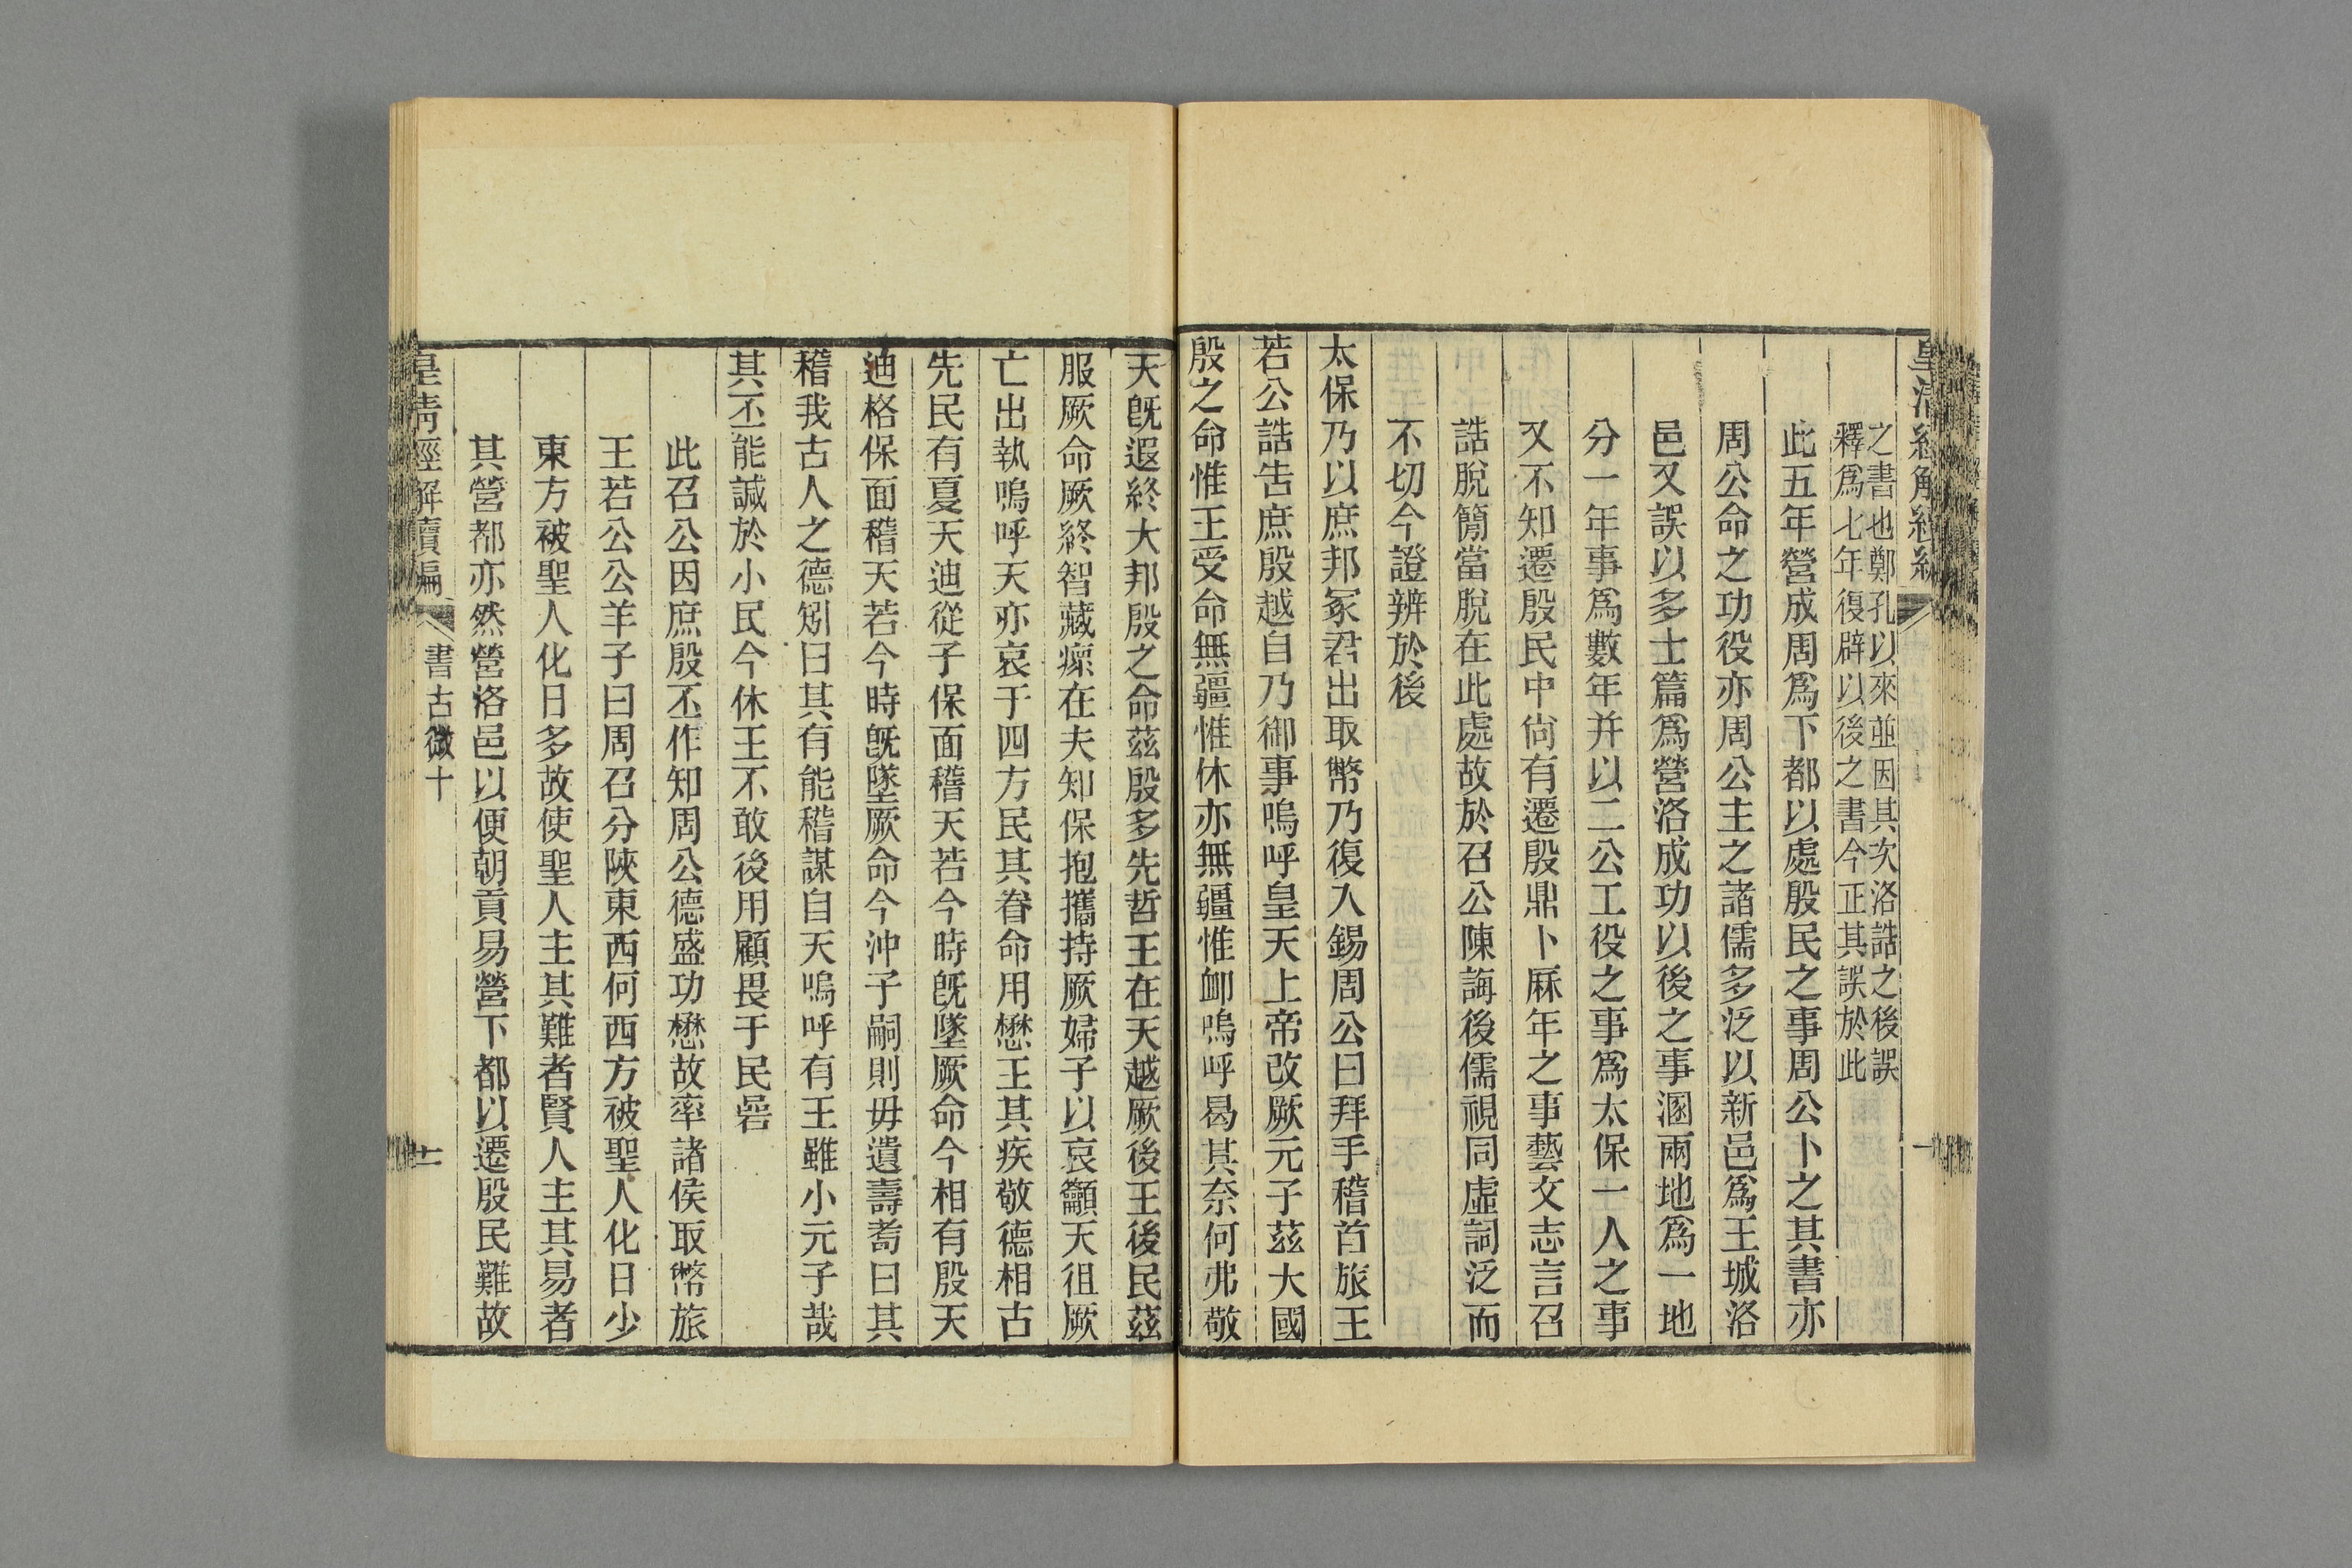 皇清經解續編
之書也鄭孔以來並因其次洛誥之後誤
釋爲七年復辟以後之書今正其誤於此
此五年營成周爲下都以處殷民之事周公卜之其書亦
周公命之功役亦周公主之諸儒多泛以新邑爲王城洛
邑又誤以多士篇爲營洛成功以後之事溷兩地爲一地
分一年事爲數年并以二公工役之事爲太保一人之事
又不知遷殷民中尙有遷殷鼎卜厤年之事藝文志言召
誥脫簡當脫在此處故於召公陳誨後儒視同虛詞泛而
不切今證辨於後
太保乃以庶邦冢君出取幣乃復入錫周公曰拜手稽首旅王
若公誥告庶殷越自乃御事嗚呼皇天上帝改厥元子茲大國
殷之命惟王受命無疆惟休亦無疆惟卹嗚呼曷其奈何弗敬
天旣遐終大邦殷之命茲殷多先哲王在天越厥後王後民茲
服厥命厥終智藏瘝在夫知保抱攜持厥婦子以哀籲天徂厥
亡出執嗚呼天亦哀于四方民其眷命用懋王其疾敬德相古
先民有夏天迪從子保面稽天若今時旣墜厥命今相有殷天
迪格保面稽天若今時旣墜厥命今沖子嗣則毋遺壽耈曰其
稽我古人之德矧曰其有能稽謀自天嗚呼有王雖小元子哉
其丕能諴於小民今休王不敢後用顧畏于民碞
此召公因庶殷丕作知周公德盛功懋故率諸侯取幣旅
王若公公羊子曰周召分陝東西何西方被聖人化日少
東方被聖人化日多故使聖人主其難者賢人主其易者
其營都亦然營洛邑以便朝貢易營下都以遷殷民難故
皇清經解續編
書古微十
十一